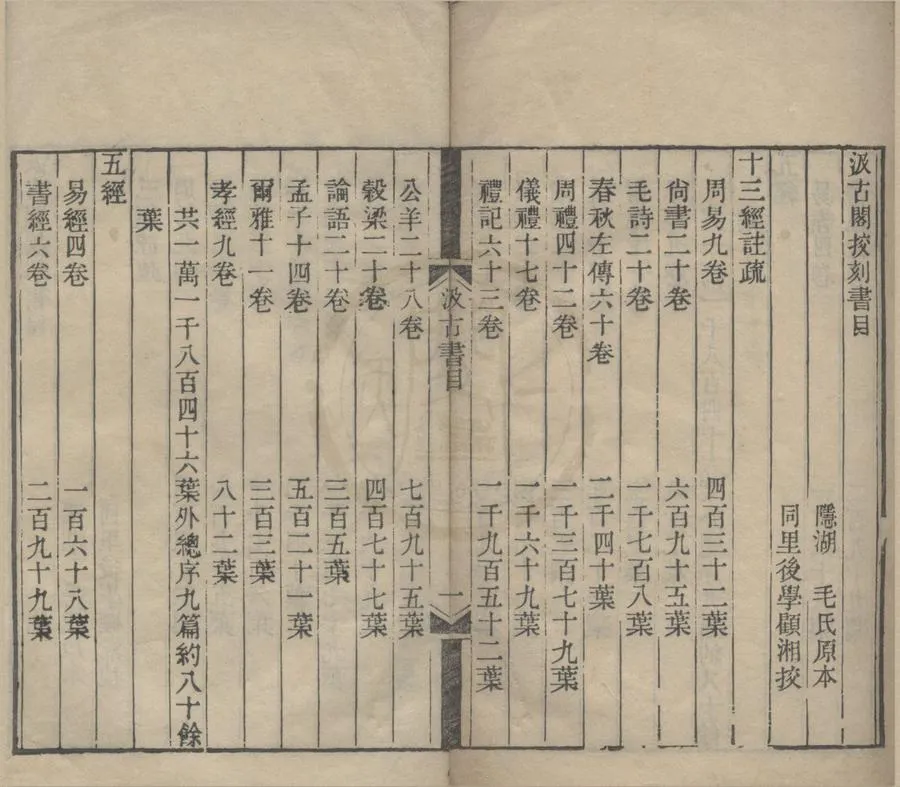 汲古閣挍刻書目
隱湖　毛氏原本
同里後學顧湘挍
十三經註疏
周易九卷　四百三十二葉
尙書二十卷　六百九十五葉
毛詩二十卷　一千七百八葉
春秋左傳六十卷　二千四十葉
周禮四十二卷　一千三百七十九葉
儀禮十七卷　一千六十九葉
禮記六十三卷　一千九百五十二葉
汲古書目　一
公羊二十八卷　七百九十五葉
穀梁二十卷　四百七十七葉
論語二十卷　三百五葉
孟子十四卷　五百二十一葉
爾雅十一卷　三百三葉
孝經九卷　八十二葉
共一萬一千八百四十六葉外總序九篇約八十餘
葉
五經
易經四卷　一百六十八葉
書經六卷　二百九十九葉